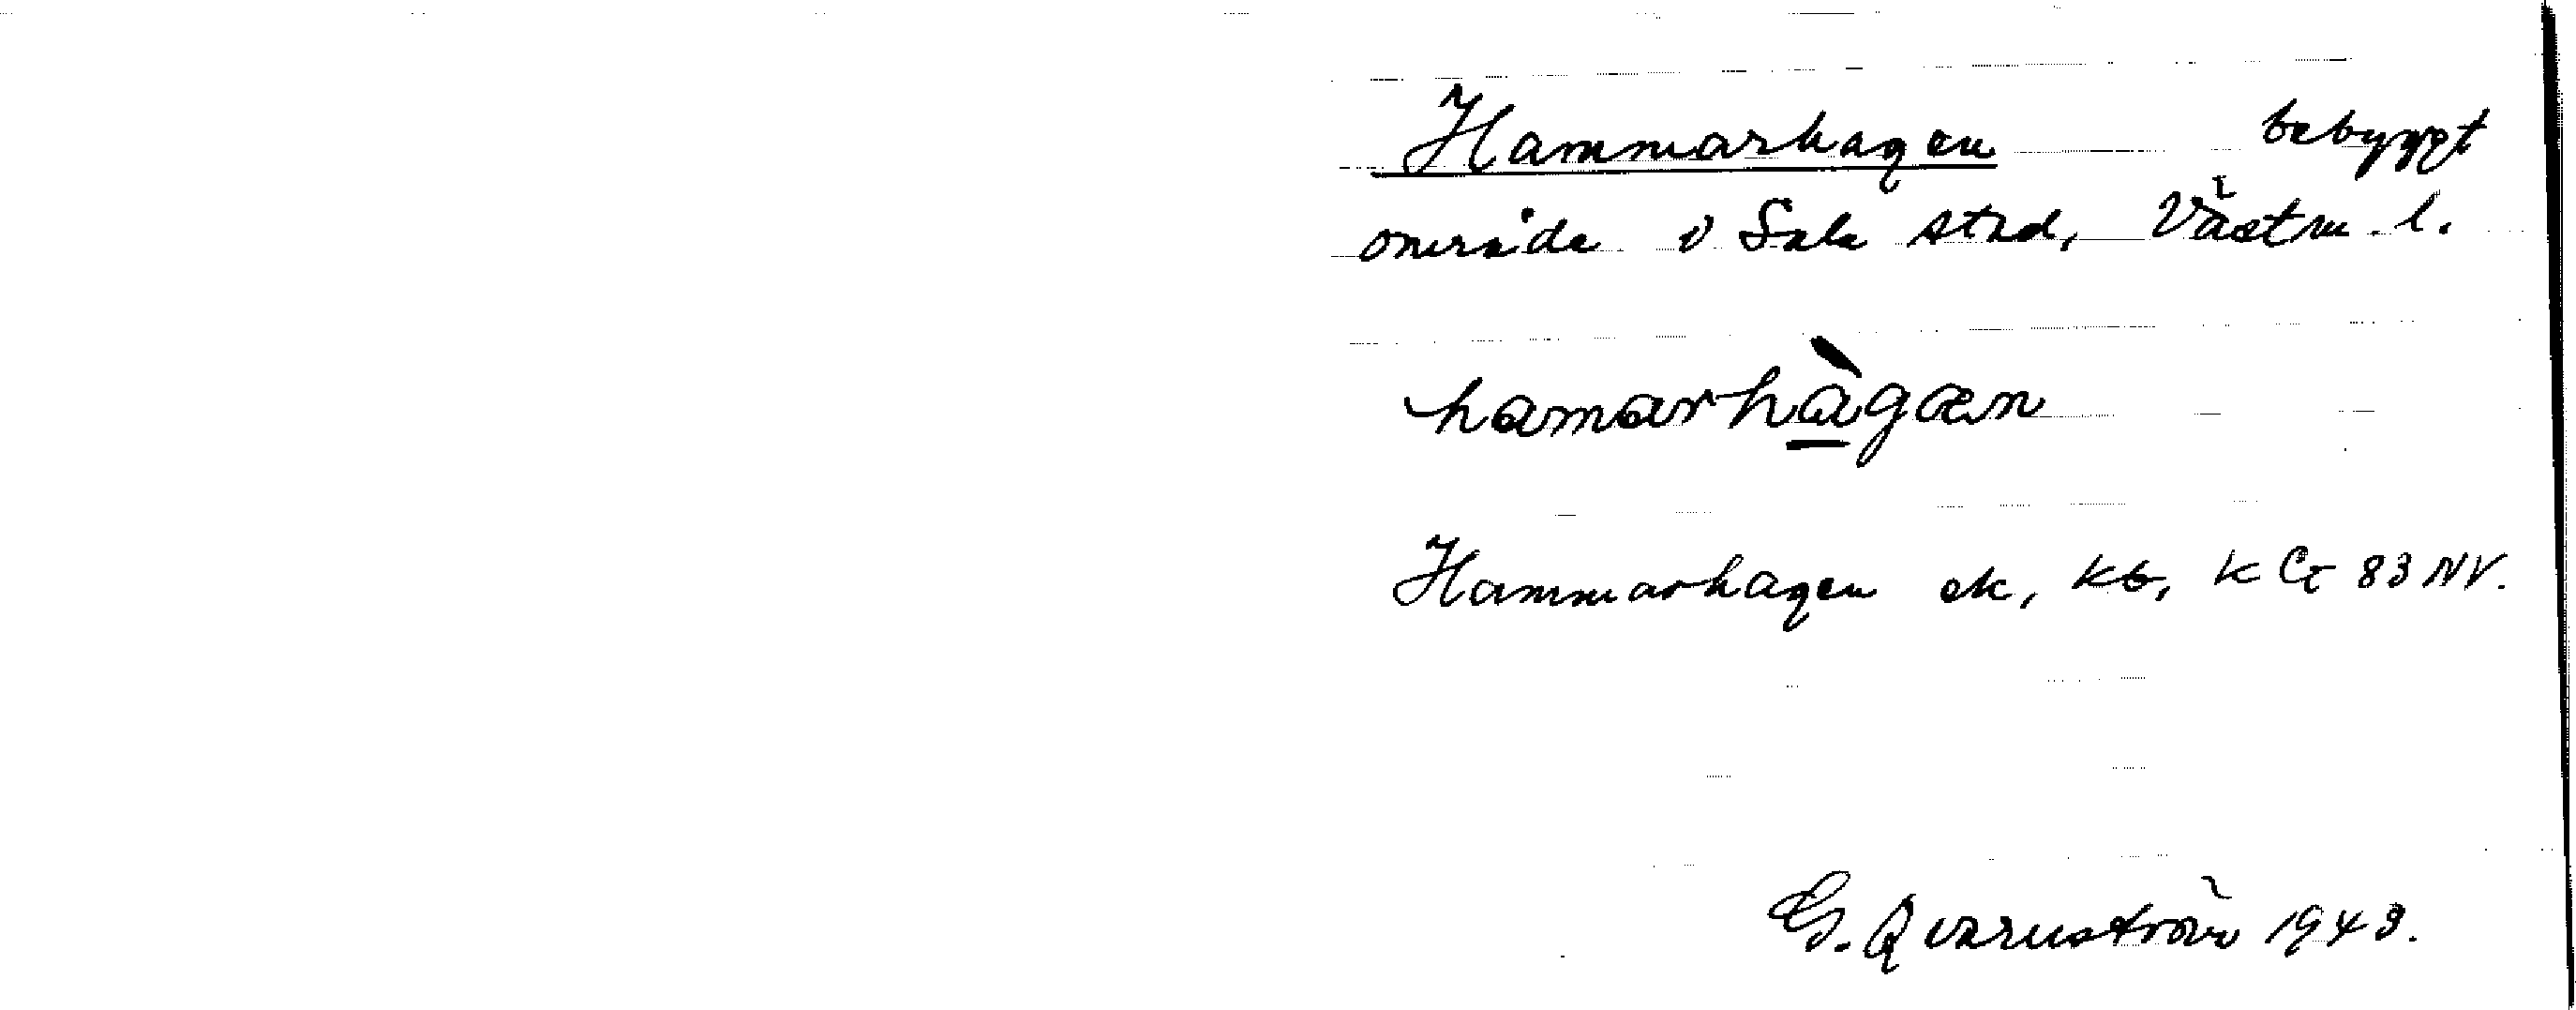 Hammarhagen bebyggt
område i Sala stad, Västm. l.
hamarhàgæn
Hammarhagen ek, kb, K 83 NV.
G. Qvarnström 1943.